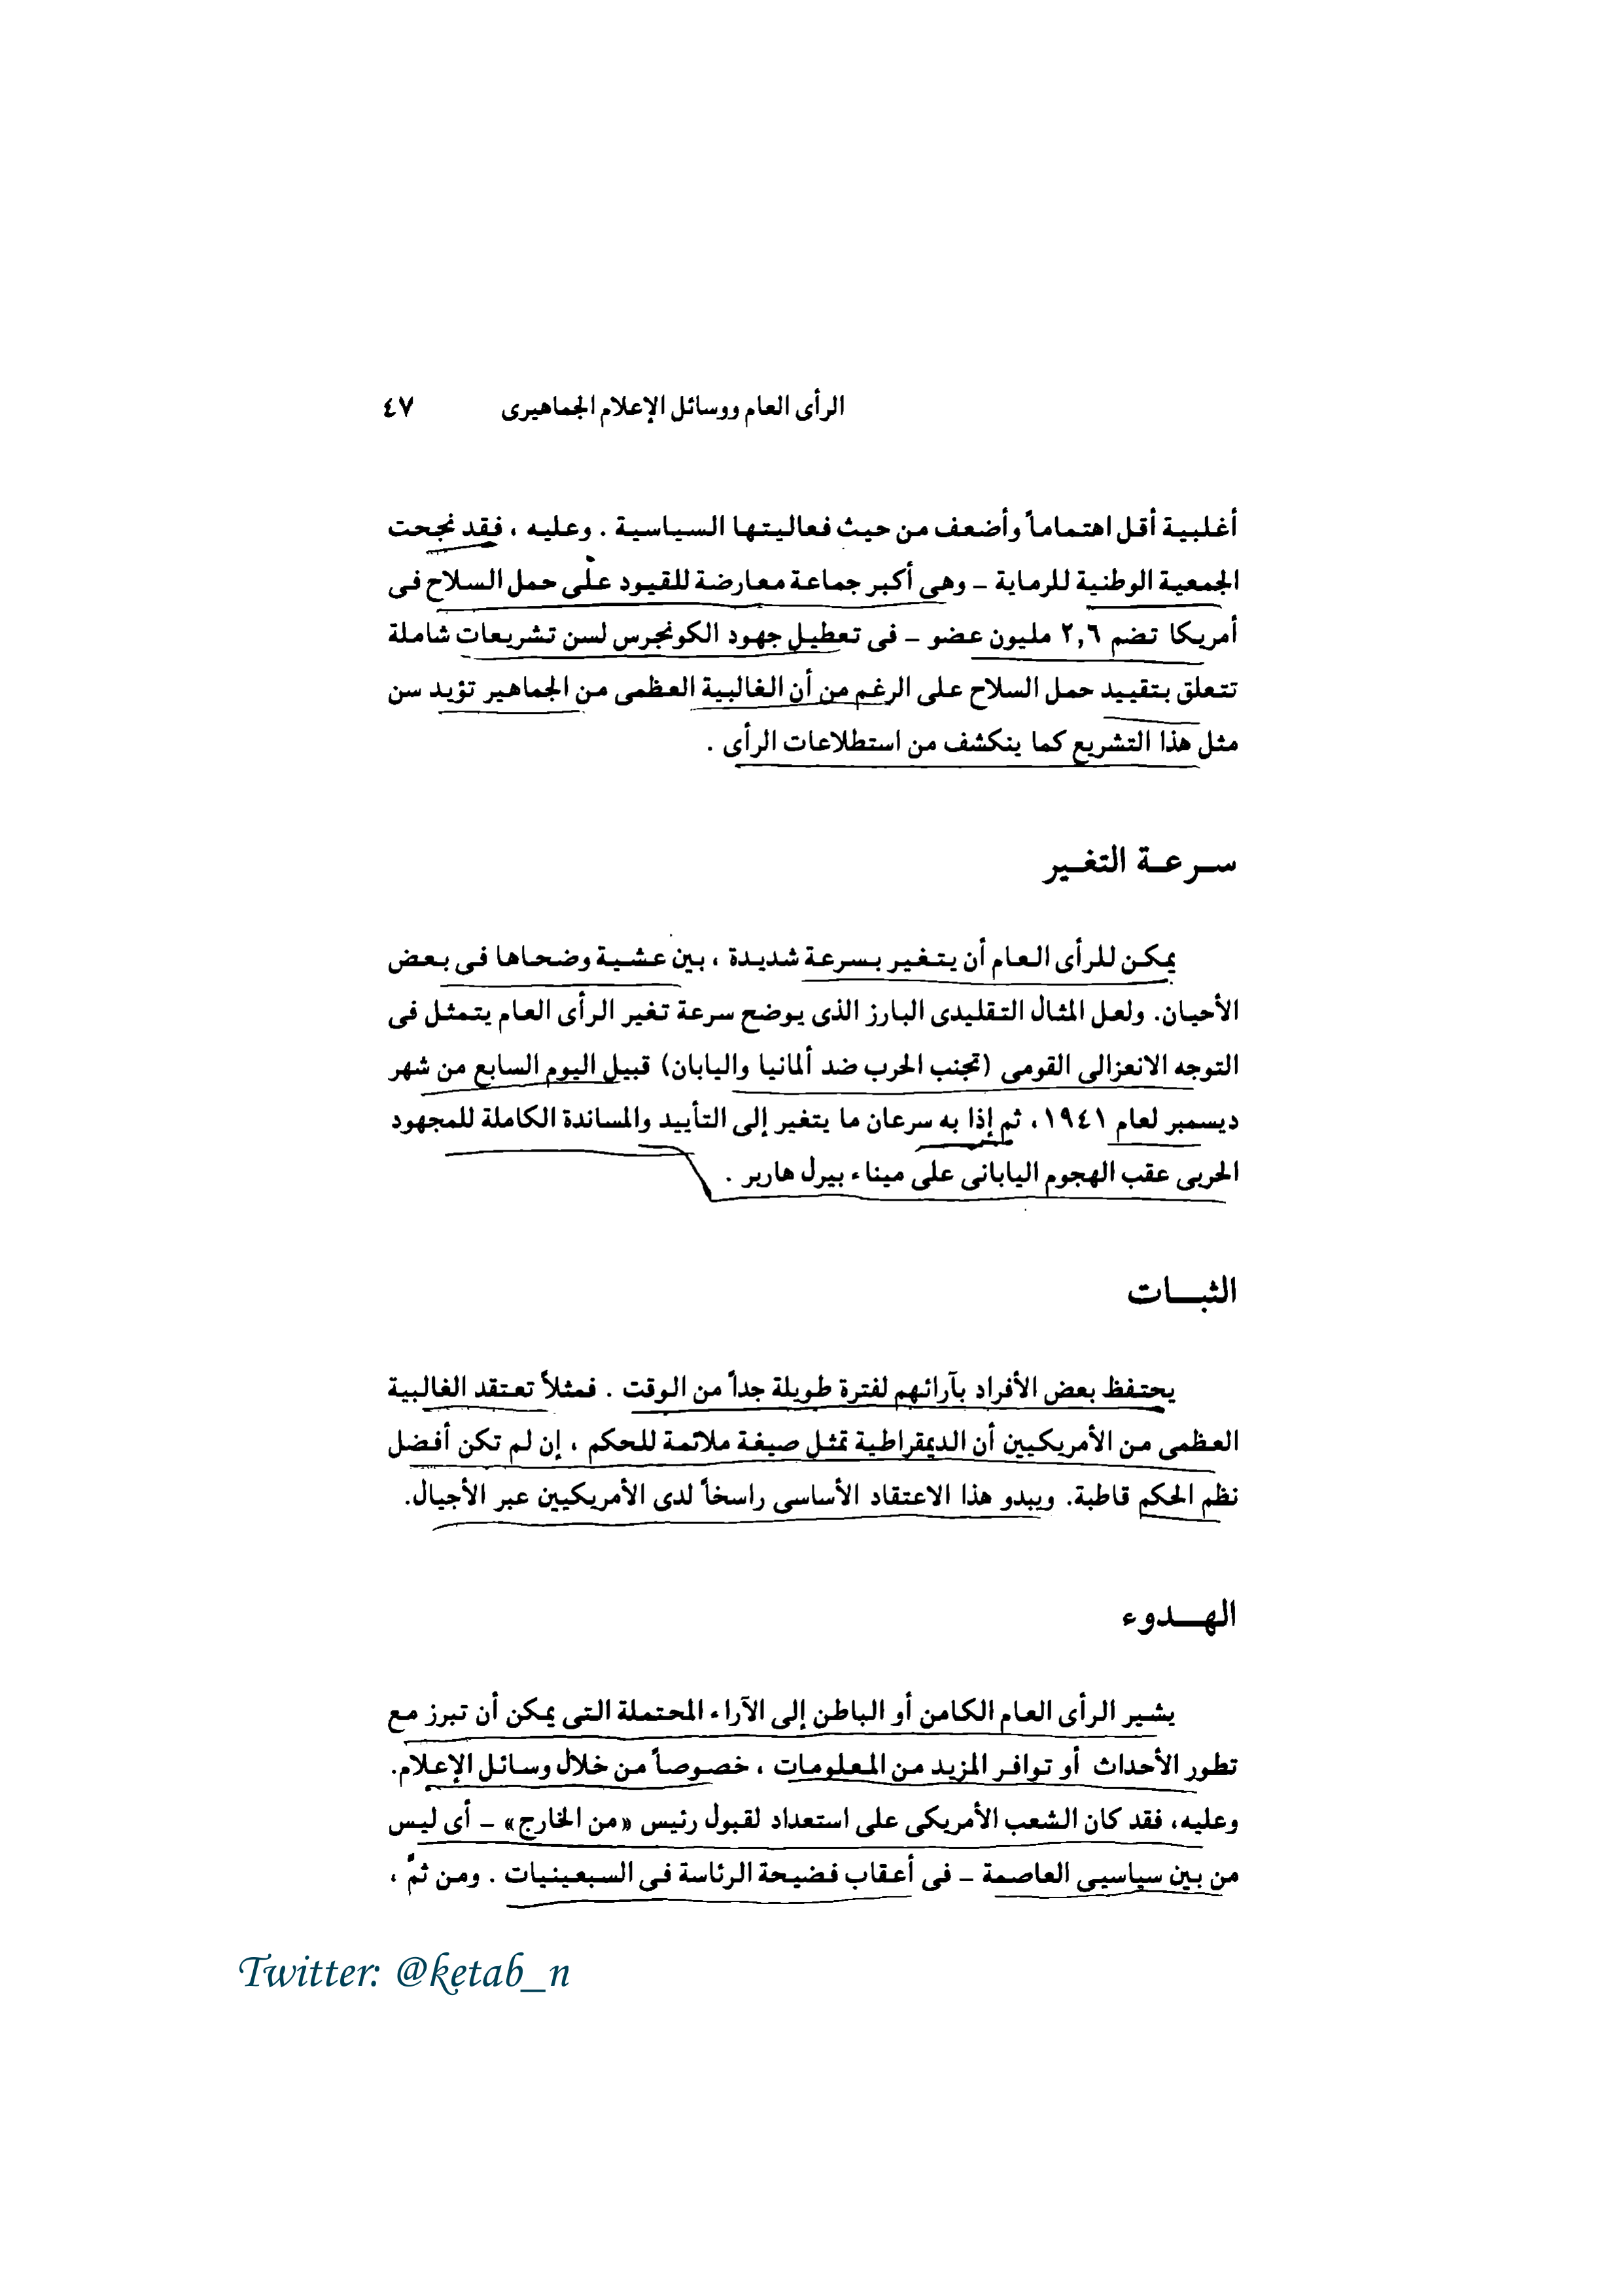 الرأى العام ووسائل الإعلام الجماهيرى ٤٧
أغلبية أقل اهتماماً وأضعف من حيث فعاليتها السياسية . وعليه ، فقد نجحت
الجمعية الوطنية للرماية – وهى أكبر جماعة معارضة للقيود على حمل السلاح فى
أمريكا تضم ٢,٦ مليون عضو – فى تعطيل جهود الكونجرس لسن تشريعات شاملة
تتعلق بتقييد حمل السلاح على الرغم من أن الغالبية العظمى من الجماهير تؤيد سن
مثل هذا التشريع كما ينكشف من استطلاعات الرأى .
سرعة التغير
يمكن للرأى العام أن يتغير بسرعة شديدة ، بين عشية وضحاها فى بعض
الأحيان. ولعل المثال التقليدى البارز الذى يوضح سرعة تغير الرأى العام يتمثل فى
التوجه الانعزالى القومى (تجنب الحرب ضد ألمانيا واليابان) قبيل اليوم السابع من شهر
ديسمبر لعام ١٩٤١، ثم إذا به سرعان ما يتغير إلى التأييد والمساندة الكاملة للمجهود
الحربى عقب الهجوم اليابانى على ميناء بيرل هاربر .
الثبات
يحتفظ بعض الأفراد بآرائهم لفترة طويلة جداً من الوقت . فمثلاً تعتقد الغالبية
العظمى من الأمريكيين أن الديمقراطية تمثل صيغة ملائمة للحكم ، إن لم تكن أفضل
نظم الحكم قاطبة. ويبدو هذا الاعتقاد الأساسى راسخاً لدى الأمريكيين عبر الأجيال.
الهدوء
يشير الرأى العام الكامن أو الباطن إلى الآراء المحتملة التى يمكن أن تبرز مع
تطور الأحداث أو توافر المزيد من المعلومات ، خصوصاً من خلال وسائل الإعلام.
وعليه، فقد كان الشعب الأمريكى على استعداد لقبول رئيس «من الخارج» – أى ليس
من بين سياسيى العاصمة – فى أعقاب فضيحة الرئاسة فى السبعينيات . ومن ثمَّ ،
Twitter: @ketab_n